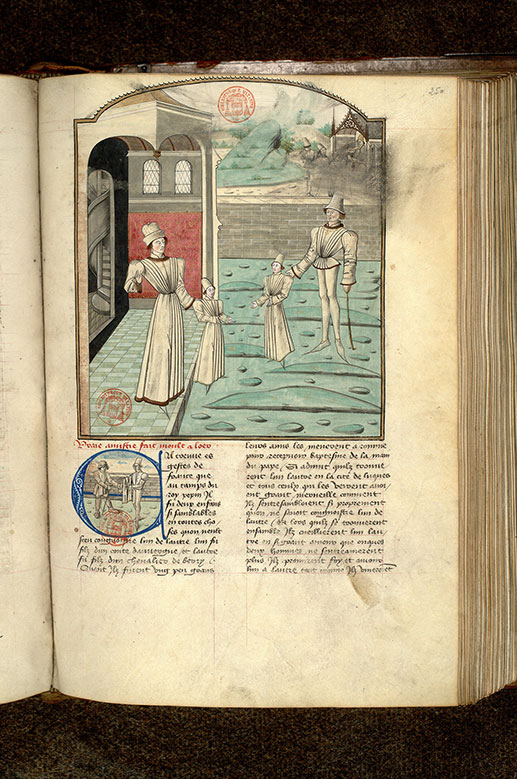 250
Vraie amistie fait moult a loer
Il treuue es
gestes de
france que
au temps du
roy pepin Il
fu deux enfans
si samblables
en toutes cho
ses quon neust
sceu congnoistre lun de lautre lun fu
filz dun conte dauuergne et lautre
fu filz dun cheualier de
Quant Ilz furent vng peu grans
leurs amis les menerent a romme
pour receuoir baptesme de la main
du pape / Et aduint quilz trouuerent
lun lautre en la cite de
et tous ceulx qui les veoient auoi
ent grant merueille comment
Ilz sentresambloient si proprement
quon ne sauoit congnoistre lun de
lautre / Et lors quilz se trouuerent
ensamble Ilz cueillierent lun lau
tre en si grant amour que onques
deux hommes ne sentramerent
plus Ilz promirent foy et amour
lun a lautre tout comme Ilz viuroient